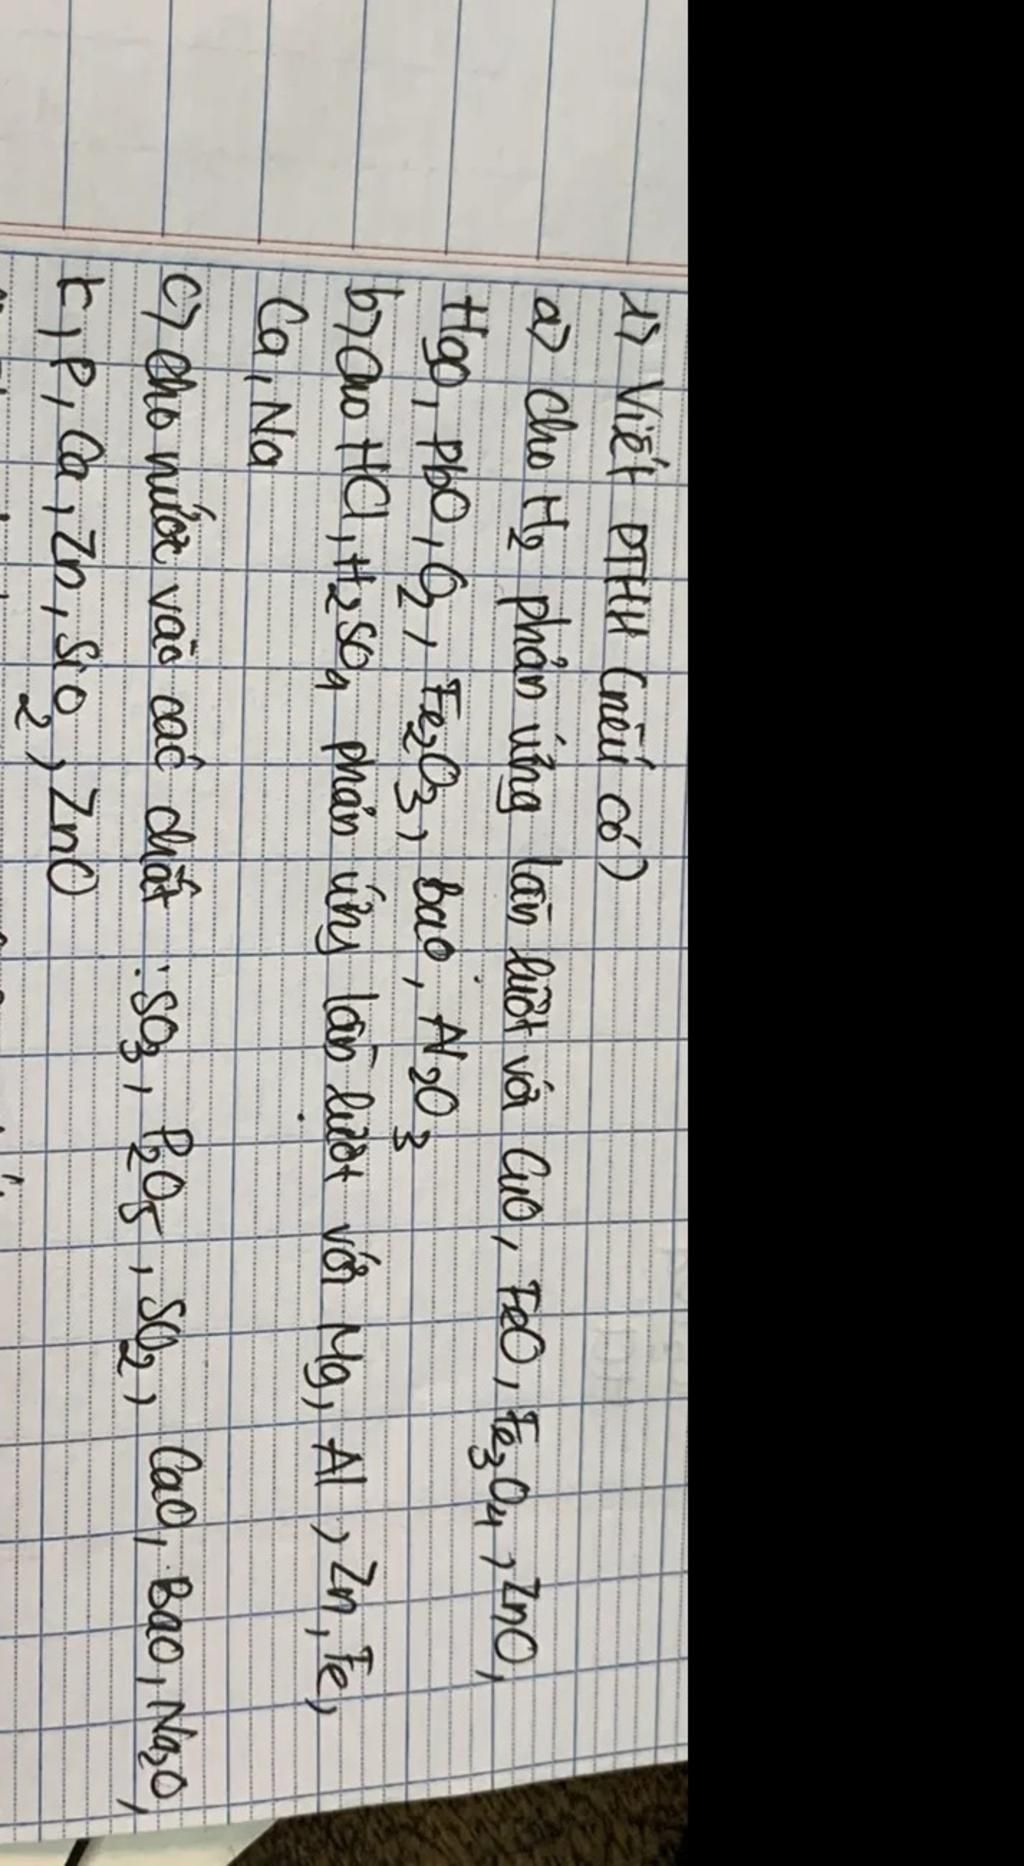 1) Viết PTHH (nếu có)
a) cho H₂ phản ứng lần lượt với CuO, FeO, Fe₃O₄, ZnO,
HgO, PbO, O₂, Fe₂O₃, bao, Al₂O₃
b) Cho HCl, H₂SO₄ phản ứng lần lượt với Mg, Al, Zn, Fe,
Ca, Na
c) cho nước vào các chất : SO₃, P₂O₅, SO₂, CaO, BaO, Na₂O,
K, P, Ca, Zn, SiO₂, ZnO